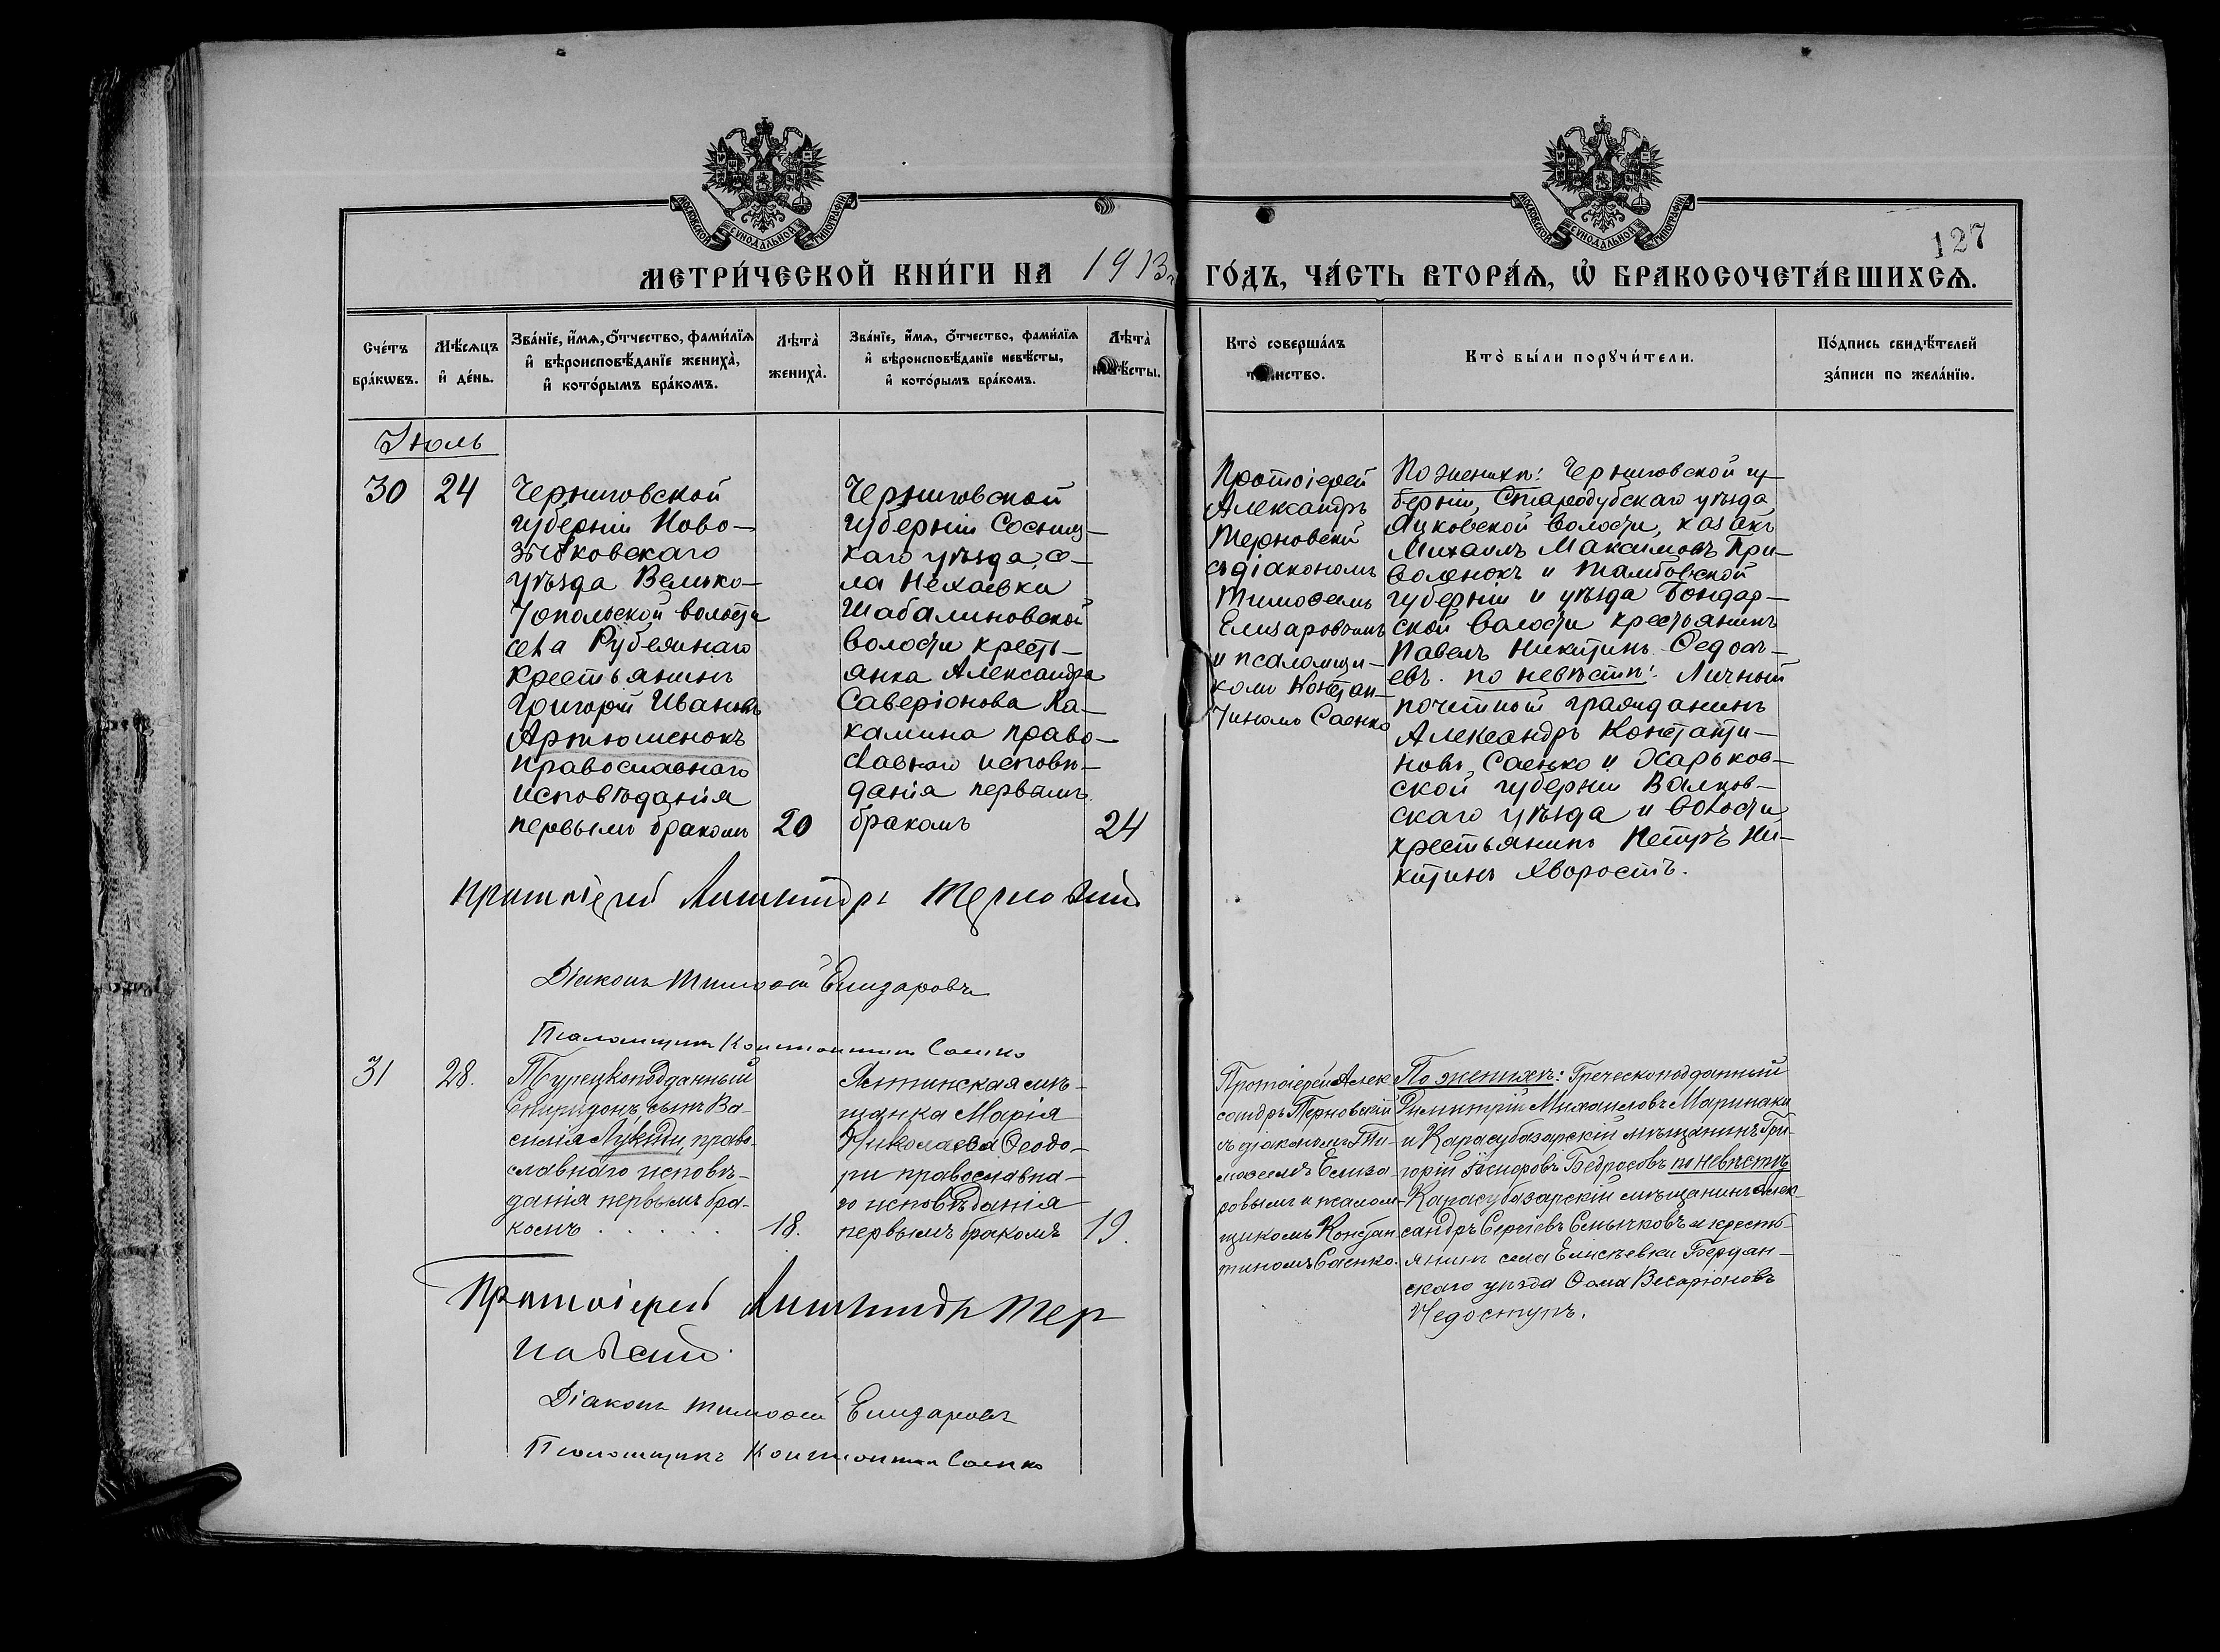 МОСКОВСКОЙ СѴНОДАЛЬНОЙ ТИПОГРАФІИ
МОСКОВСКОЙ СѴНОДАЛЬНОЙ ТИПОГРАФІИ
127
МЕТРИ́ЧЕСКОЙ КНИ́ГИ НА 1913 г. ГО́ДЪ, ЧА́СТЬ ВТОРА́Ѧ, Ѡ҆ БРАКОСОЧЕТА́ВШИХСѦ.
Сче́тъ бра́кѡвъ.
Мѣ́сѧцъ и҆ де́нь.
Зва́нїе, и҆́мѧ, ѻ҆́тчество, фами́лїѧ
и҆ вѣроисповѣ́данїе жениха̀,
и҆ кото́рымъ бра́комъ.
Лѣ́та̀ жениха̀.
Зва́нїе, и҆́мѧ, ѻ҆́тчество, фами́лїѧ
и҆ вѣроисповѣ́данїе невѣ́сты,
и҆ кото́рымъ бра́комъ.
Лѣ́та̀ невѣ́сты.
Кто̀ соверша́лъ
та́инство.
Кто̀ бы́ли порꙋчи́тели.
По́дпись свидѣ́телей
за́писи по жела́нїю.
Іюль
30
24
Черниговской
губерніи Ново-
зыбковскаго
уѣзда Велико-
Топольской волости
села Рубежнаго
крестьянинъ
Григорій Ивановъ
Артюшенокъ
православнаго
исповѣданія
первымъ бракомъ
20
Черниговской
губерніи Сосниц-
каго уѣзда, се-
ла Нехаевки
Шабалиновской
волости кресть-
янка Александра
Саверіонова Ка-
калина право-
славнаго исповѣ-
данія первымъ
бракомъ
24
Протоіерей
Александръ
Терновскій
съ діакономъ
Тимоѳеемъ
Елизаровымъ
и псаломщи-
комъ Констан-
тиномъ Саенко
По женихѣ: Черниговской гу-
берніи, Стародубскаго уѣзда
Яцковской волости, казакъ
Михаилъ Максимовъ При-
воленокъ и Тамбовской
губерніи и уѣзда Бондар-
ской волости крестьянинъ
Павелъ Никитинъ Ѳедоса-
евъ. по невѣстѣ: Личный
почетный гражданинъ
Александръ Константи-
новъ Саенко и Харьков-
ской губерніи Валков-
скаго уѣзда и волости
крестьянинъ Петръ Ни-
китинъ Хворостъ.
Протоіерей Александръ Терновскій
Діаконъ Тимоѳей Елизаровъ
Псаломщикъ Константинъ Саенко
31
28.
Турецкоподданный
Спиридонъ, сынъ Ва-
силія Лукиди, право-
славнаго исповѣ-
данія первымъ бра-
комъ . . . . .
18.
Ялтинская мѣ-
щанка Марія
Николаева Ѳеодо-
ри православна-
го исповѣданія
первымъ бракомъ
19.
Протоіерей Алек
сандръ Терновскій
съ діакономъ Ти-
моѳеемъ Елиза-
ровымъ и псалом-
щикомъ Констан
тиномъ Саенко.
По женихѣ: Греческоподданный
Димитрій Михаиловъ Маринаки
и Карасубазарскій мѣщанинъ Гри-
горій Іосифовъ Бедросовъ по невѣстѣ
Карасубазарскій мѣщанинъ Алек-
сандръ Сергіевъ Смычковъ и кресть-
янинъ села Елисѣевки Бердян-
скаго уѣзда Ѳома Весаріоновъ
Недоступъ.
Протоіерей Александръ Тер
новскій.
Діаконъ Тимоѳей Елизаровъ
Псаломщикъ Константинъ Саенко